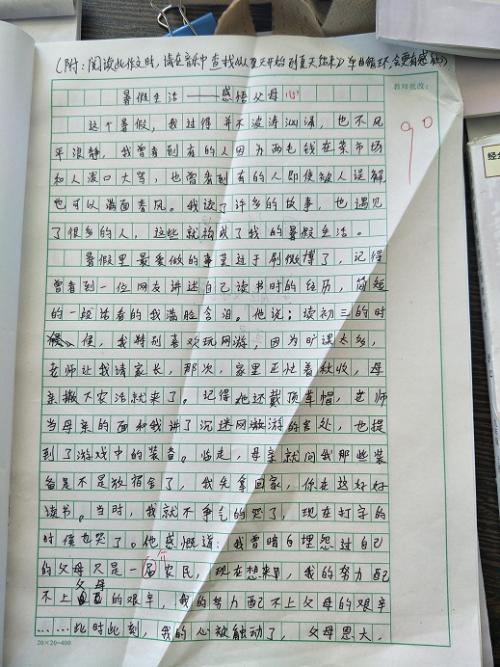 (附:阅读此作文时,请在音乐中查找《从夏天开始到夏天结束》单曲循环,会更有感触)
教师批改:
暑假生活——感悟父母心
90
这个暑假,我过得并不波涛汹涌,也不风
平浪静,我曾看到有的人因为两毛钱在菜市场
和人破口大骂,也曾看到有的人即使被人误解
也可以满面春风。我读了许多的故事,也遇见
了很多的人,这些就构成了我的暑假生活。
暑假里最爱做的事莫过于刷微博了,记得
曾看到一位网友讲述自己读书时的经历,简短
的一段话看的我满脸含泪。他说:读初三的时
候,我特别喜欢玩网游,因为旷课太多,
老师让我请家长,那次,家里正忙着秋收,母
亲撇下农活就来了。记得她还戴顶草帽,老师
当母亲的面和我讲了沉迷网游的害处,也提
到了游戏中的装备。临走,母亲就问我那些装
备是不是放宿舍了,我先拿回家,你在这好好
读书。当时,我就不争气的哭了,现在打字的
时候也哭了。他感慨道:我曾暗自埋怨过自己
的父母只是一个农民,现在想来,我的努力配
不上父母的艰辛,我的努力配不上父母的艰辛
……此时此刻,我的心被触动了,父母恩大,
20×20=400